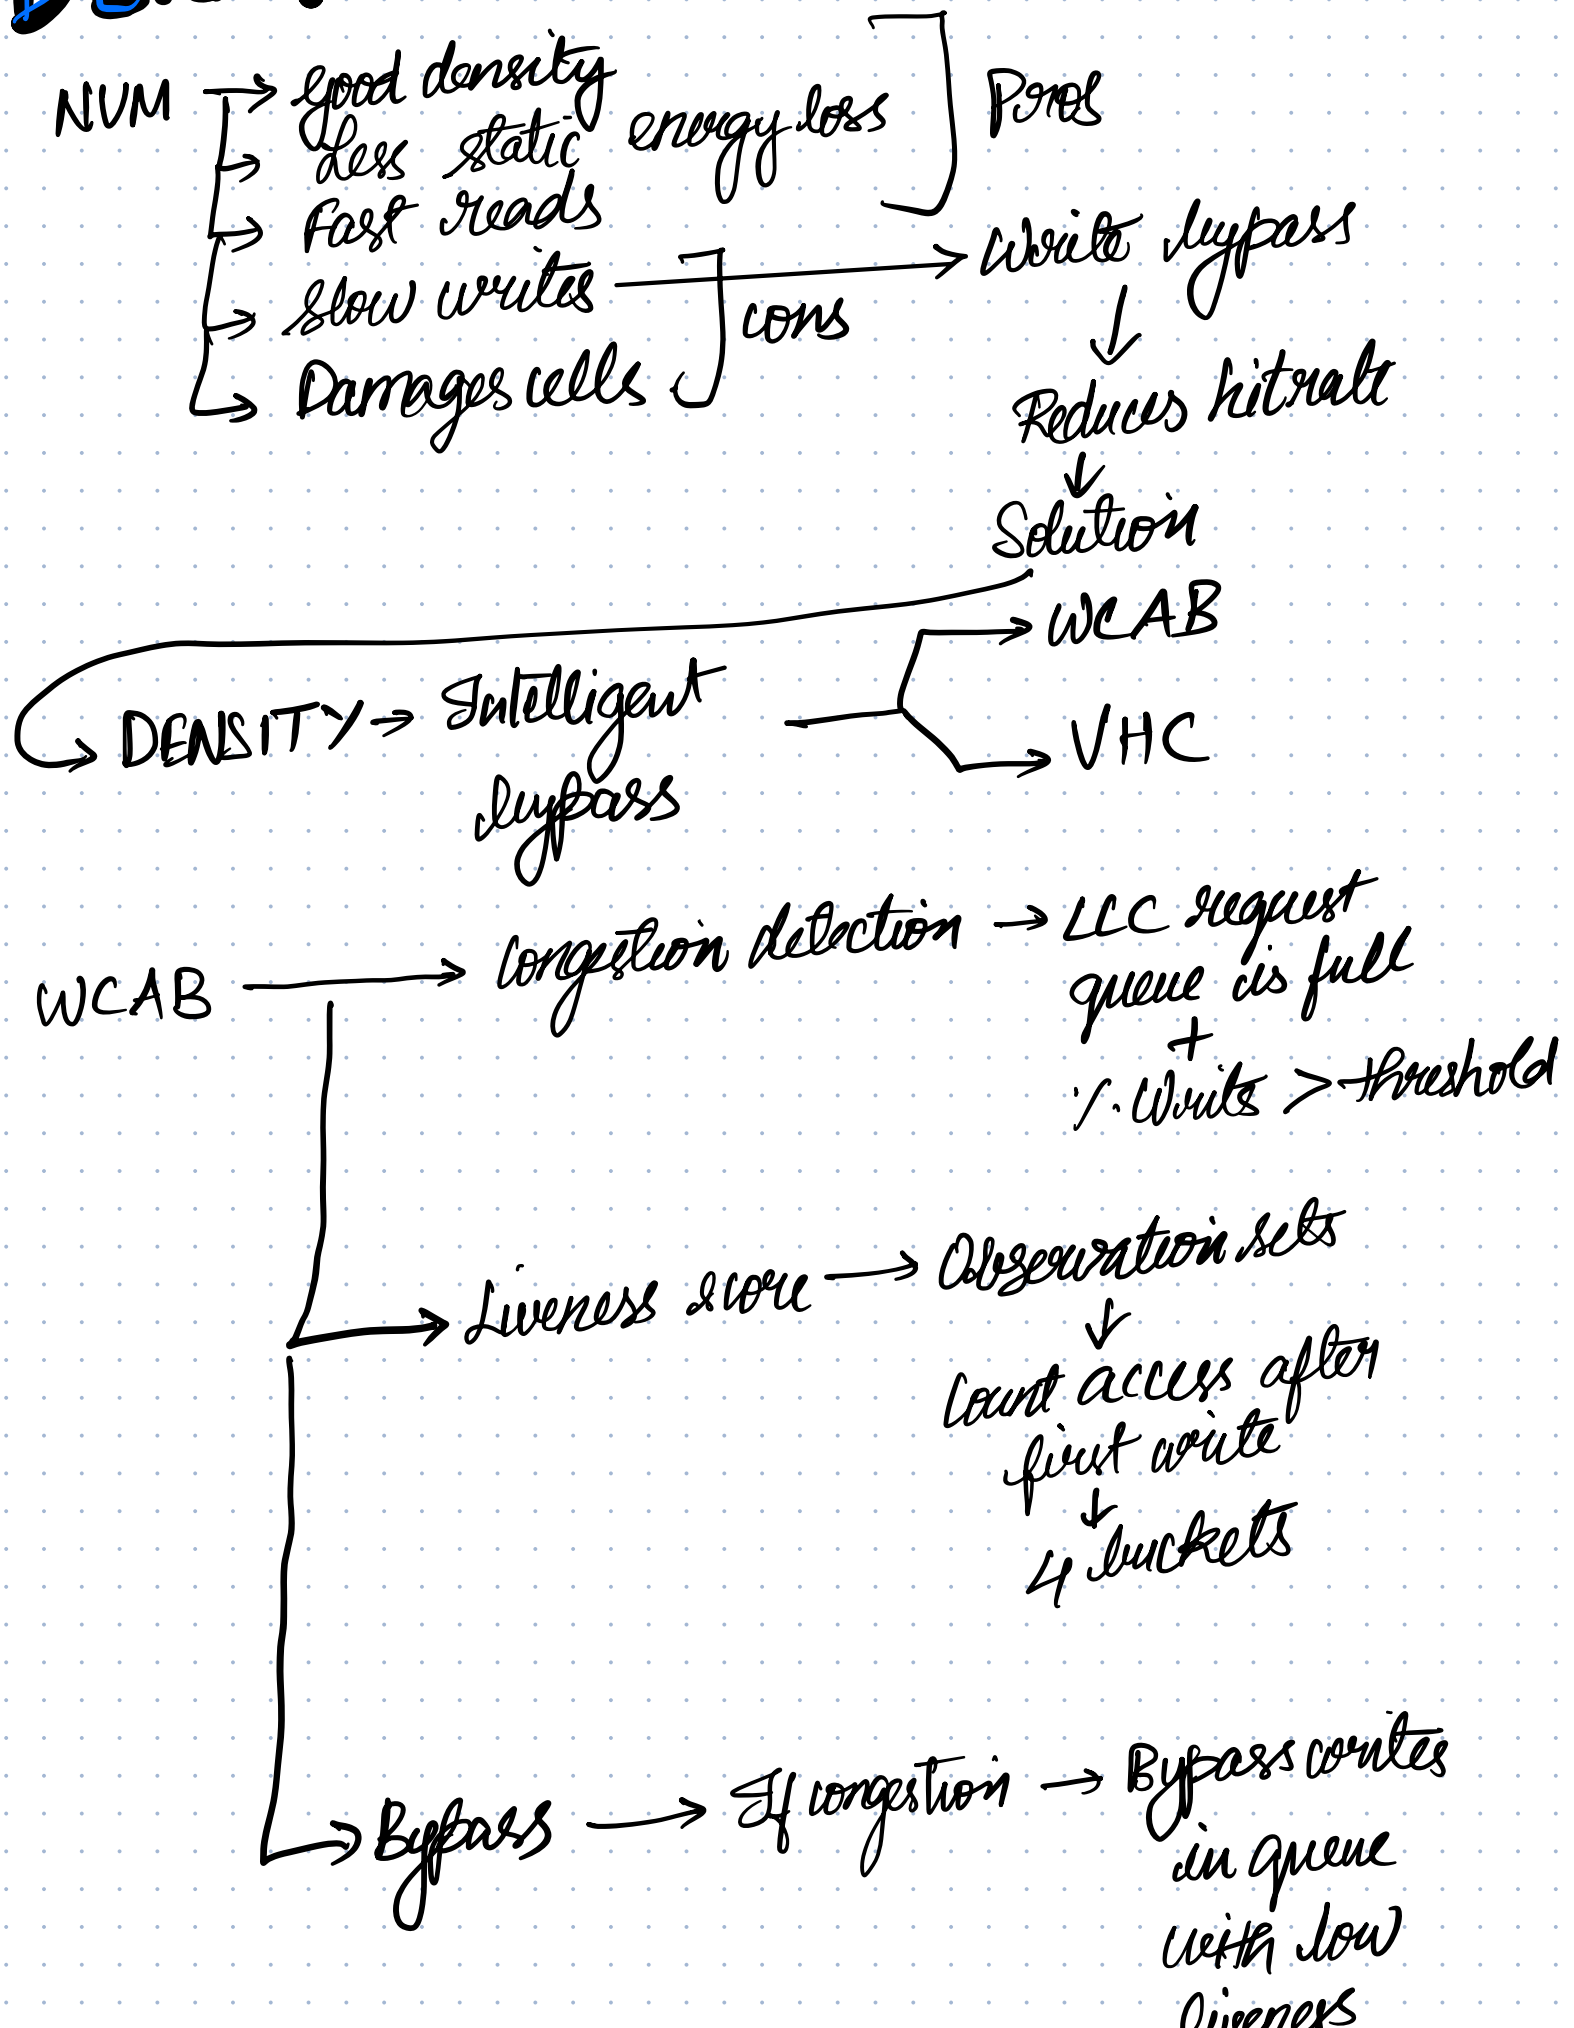 NVM → Good density
→ Less static energy loss
→ Fast reads
Pros
→ Slow writes
→ Damages cells
cons
→ Write bypass
↓
Reduces hitrate
↓
Solution
→ DENSITY → Intelligent
bypass
→ WCAB
→ VHC
WCAB → Congestion detection → LLC request
queue is full
+
% Writes > threshold
→ Liveness score → Observation sets
↓
Count access after
first write
↓
4 buckets
→ Bypass → If congestion → Bypass writes
in queue
with low
liveness